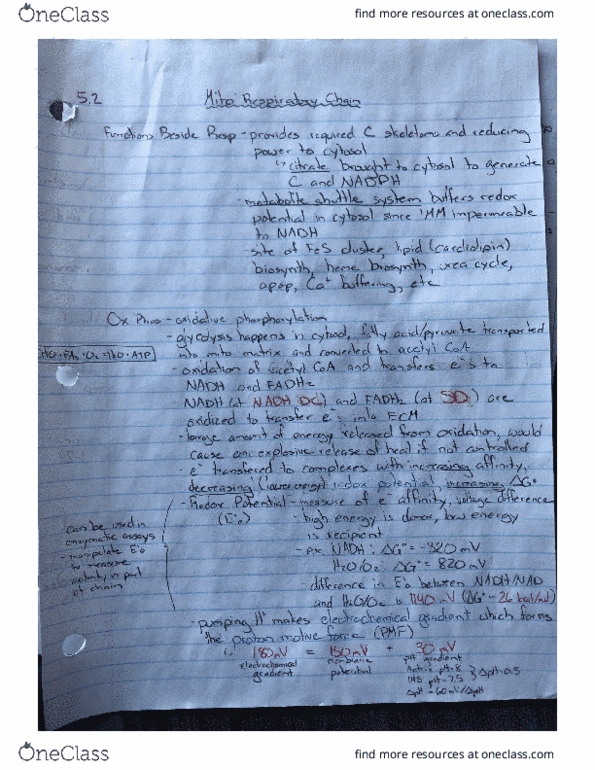 OneClass
find more resources at oneclass.com
5.2 Mito Respiratory Chain
Functions Beside Resp - provides required C skeletons and reducing
power to cytosol
citrate brought to cytosol to generate
C and NADPH
- metabolite shuttle system buffers redox
potential in cytosol since IMM impermeable
to NADH
- site of FeS cluster, lipid (cardiolipin)
biosynth, heme biosynth, urea cycle,
apop, Ca+ buffering, etc
Ox Phos - oxidative phosphorylation
- glycolysis happens in cytosol, fatty acid/pyruvate transported
into mito matrix and converted to acetyl CoA
- oxidation of acetyl CoA and transfers e-s to
NADH and FADH2
NADH (at NADH DC) and FADH2 (at SD) are
oxidized to transfer e-s into ECM
- large amount of energy released from oxidation, would
cause an explosive release of heat if not controlled
- e- transfered to complexes with increasing affinity,
decreasing redox potential, increasing ΔG°
- Redox Potential - measure of e- affinity, voltage difference
(E'o) - high energy is donor, low energy
is recipient
- ex. NADH: ΔG°= -320 mV
H2O/O2: ΔG°= 820 mV
- difference in E'o between NADH/NAD
and H2O/O2 is 1140 mV
can be used in
enzymatic assays
- manipulate E'o
to measure
activity in part
of chain
- pumping H+ makes electrochemical gradient which forms
the proton motive force (PMF)
180mV = 150mV + 30mV
electrochemical gradient
membrane potential
pH gradient
Matrix pH=8
IMS pH=7.5 } ΔpH=0.5
OneClass
find more resources at oneclass.com